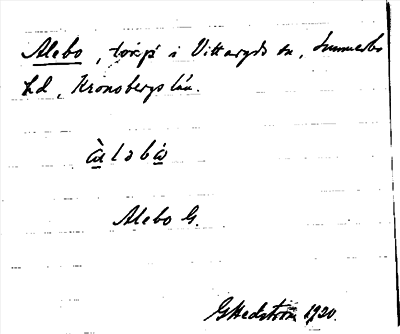 Alebo, torp i Vittaryds sn, Sunnerbo
hd, Kronobergs län.
àləbó
Alebo G.
GHedström 1920.